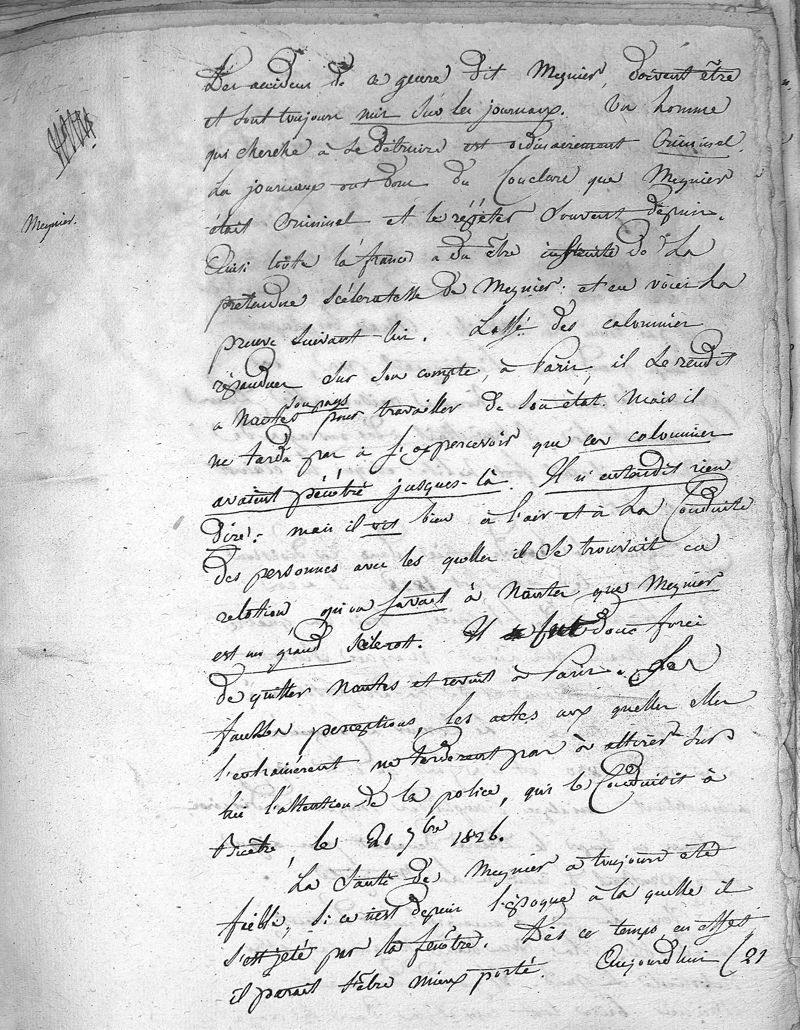 Meynier.
Des accidens de ce genre dit Meynier, doivent être
et sont toujours mis sur les journaux. Un homme
qui cherche à se détruire est ordinairement criminel.
La journaux ont donc du conclure que Meynier
était criminel et le répéter souvent depuis.
Ainsi toute la france a du être instruite de la
prétendue scéleratesse de Meynier: et en voici la
preuve suivant lui. Lassé des calomnies
répandues sur son compte, à Paris, il se rendit
a Nantes son pays pour travailler de son état. Mais il
ne tarda pas à s'appercevoir que ces calomnies
avaient pénétré jusques-là. Il n'entendit rien
dire: mais il vit bien à l'air et à la conduite
des personnes avec les quelles il se trouvait en
relation qu'on savait à Nantes que Meynier
est un grand scélerat. Il fut donc forcé
de quitter Nantes et revint à Paris. Les
fausses perceptions, les actes aux quelles elles
l'entrainèrent ne tardèrent pas à attirer sur
lui l'attention de la police, qui le conduisit à
Bicêtre le 20 7bre 1826.
La santé de Meynier a toujours été
faible, si ce n'est depuis l'époque à la quelle il
s'est jeté par la fenêtre. Dès ce temps, en effet
il parait s'être mieux porté. Aujourd'hui (21